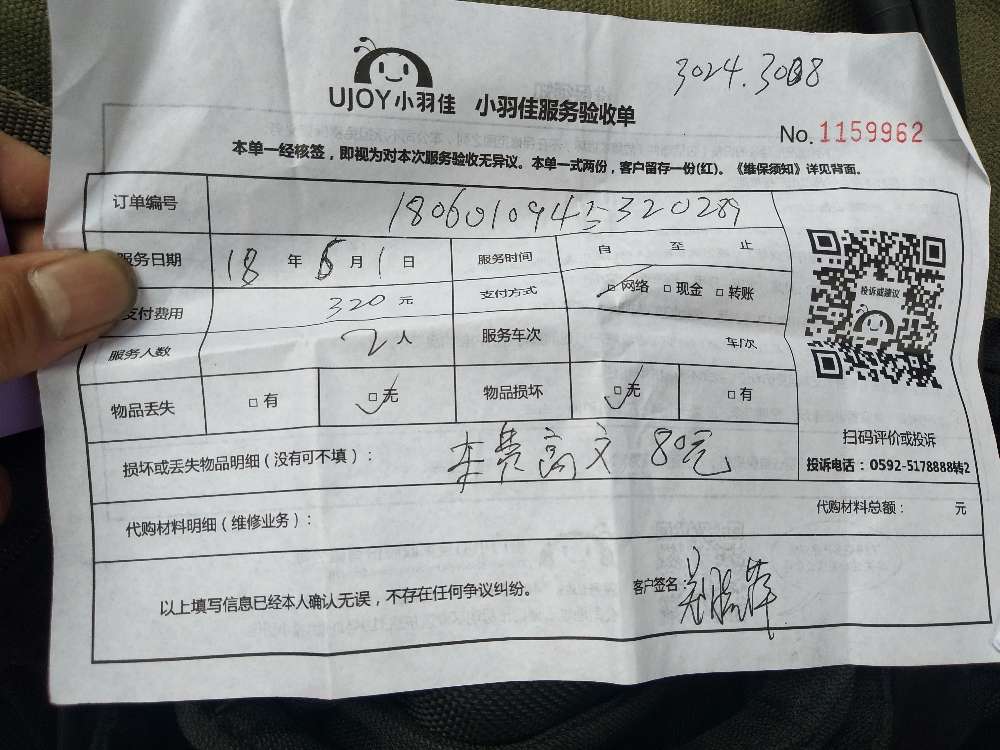 3024.3088
UJOY小羽佳 小羽佳服务验收单
No. 1159962
本单一经核签，即视为对本次服务验收无异议。本单一式两份，客户留存一份(红)。《维保须知》详见背面。
订单编号
服务日期 18 年 6 月 1 日 服务时间 自 至 止
支付费用 320 元 支付方式 □网络 □现金 □转账
服务人数 2 人 服务车次 车/次
物品丢失 □有 □无 物品损坏 □无 □有
投诉或建议
扫码评价或投诉
投诉电话：0592-5178888转2
损坏或丢失物品明细（没有可不填）： 车费 80元
代购材料明细（维修业务）： 代购材料总额： 元
以上填写信息已经本人确认无误，不存在任何争议纠纷。 客户签名：